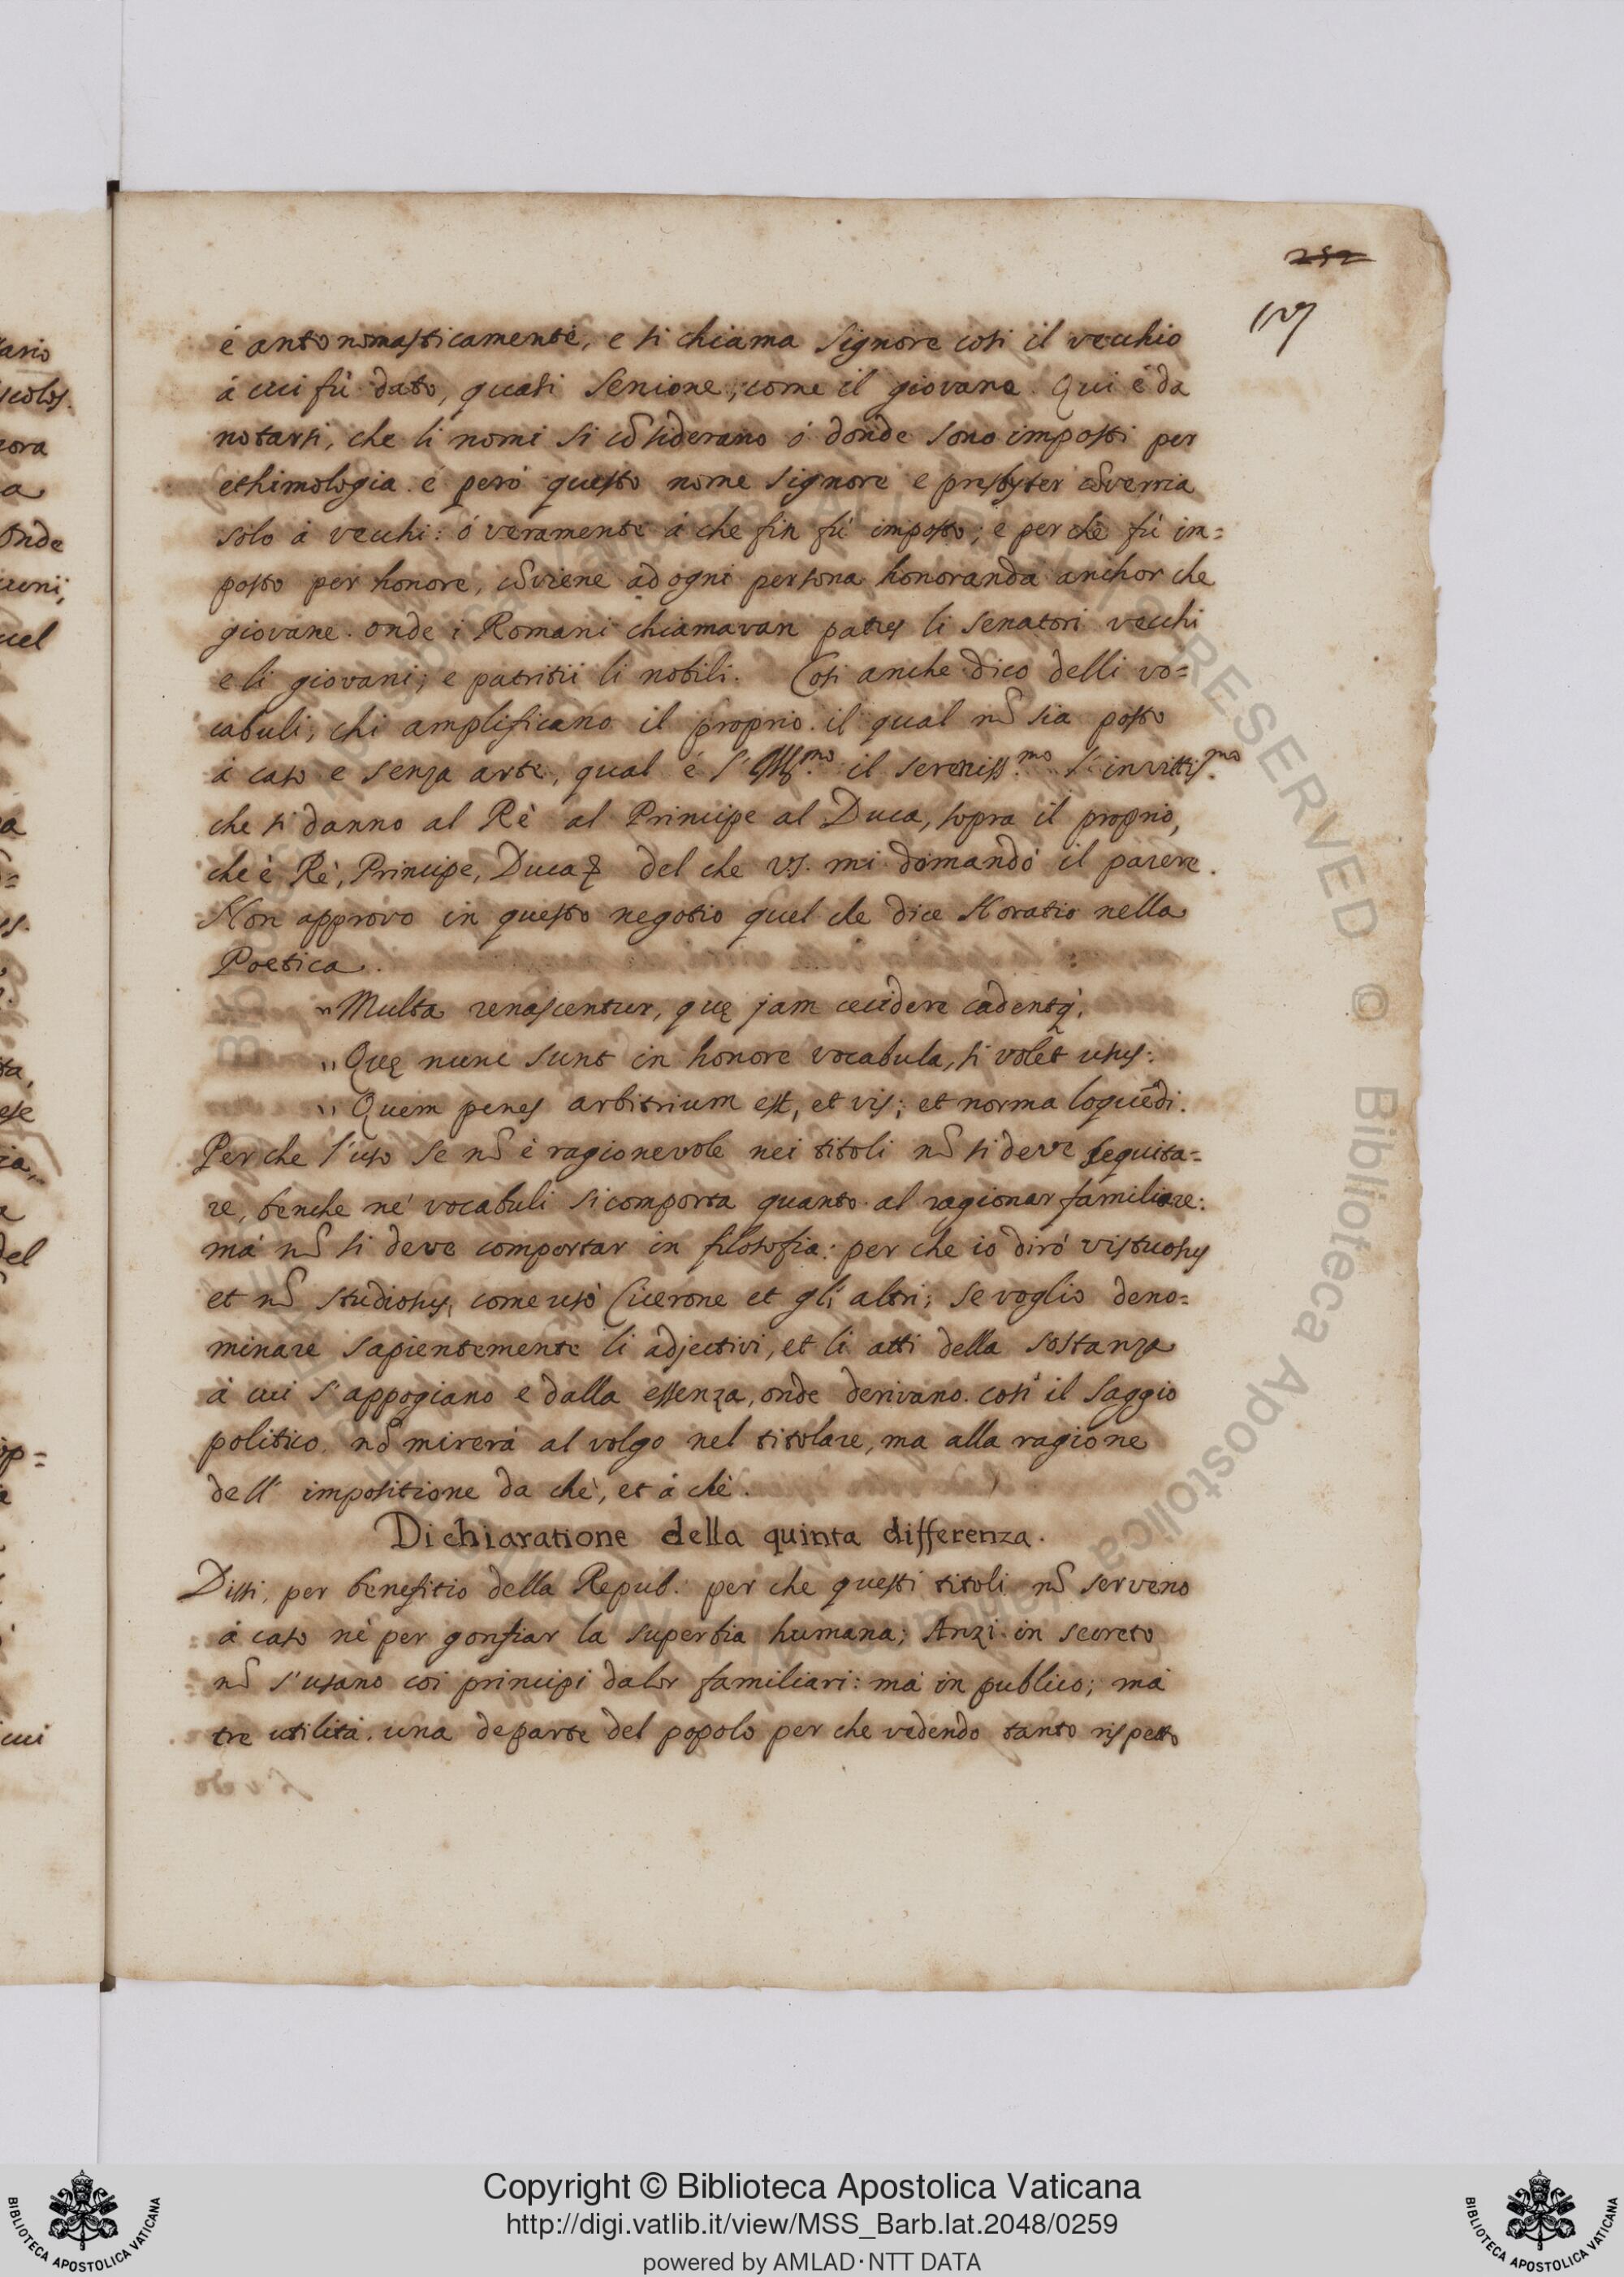 252
127
é antonomasticamente, e si chiama Signore cosi il vecchio
á cui fú dato, quasi Senione, come il giovane. Qui é da
notarsi, che li nomi si cõsiderano ó donde sono imposti per
ethimologia. é peró questo nome Signore e presbyter cõverria
solo á vecchi: ó veramente á che fin fú imposto; e per che fú im=
posto per honore, cõviene ad ogni persona honoranda anchor che
giovane. onde i Romani chiamavan patres li Senatori vecchi
e li giovani; e patritii li nobili. Cosi anche dico delli vo=
cabuli, chi amplificano il proprio. il qual nõ sia posto
á caso e senza arte, qual é l'Ill.mo il sereniss.mo l'invittis.mo
che si danno al Rè al Principe al Duca, sopra il proprio,
che è Rè, Principe, Duca del che VS. mi domandó il parere.
Non approvo in questo negotio quel che dice Horatio nella
Poetica.
" Multa renascentur, quę jam cecidere cadentq;
" Quę nunc sunt in honore vocabula, si volet usus:
" Quem penes arbitrium est, et vis; et norma loquẽdi.
Per che l'uso se nõ è ragionevole nei titoli nõ si deve sequita=
re, benche né vocabuli si comporta quanto al ragionar familiare:
má nõ si deve comportar in filosofia: per che io diró virtuosus
et nõ studiosus, come usó Cicerone et gli altri; se voglio deno=
minare sapientemente li adjectivi, et li atti della sostanza
á cui s'appogiano e dalla essenza, onde derivano. cosi il Saggio
politico nõ mirerá al volgo nel titolare, ma alla ragione
dell' impositione da chè, et á chè.
Dichiaratione della quinta differenza.
Dissi, per benefitio della Repub. per che questi titoli nõ serveno
á caso nè per gonfiar la superbia humana; Anzi in secreto
nõ s'usano coi principi da lor familiari: má in publico; má
tre utilitá. una de parte del popolo per che vedendo tanto rispetto
Copyright © Biblioteca Apostolica Vaticana
http://digi.vatlib.it/view/MSS_Barb.lat.2048/0259
powered by AMLAD·NTT DATA